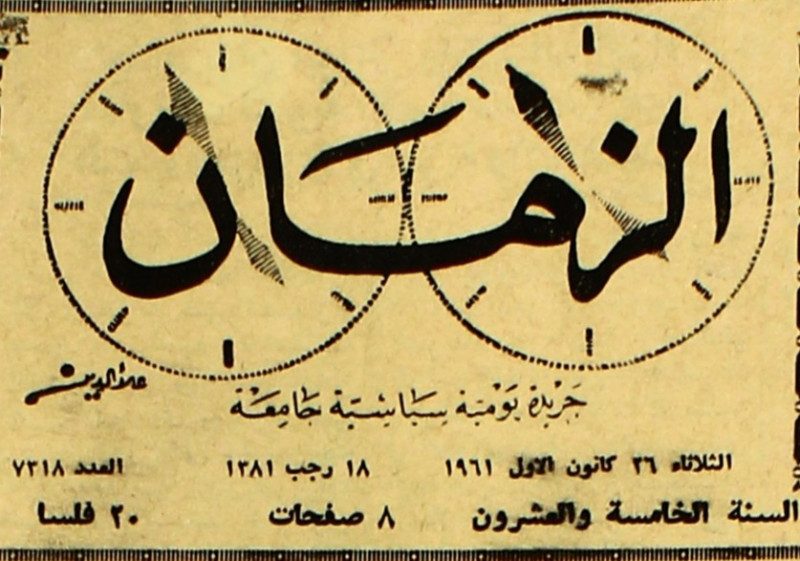 الزمان
علاءالدين
جريدة يومية سياسية جامعة
الثلاثاء ٢٦ كانون الاول ١٩٦١ ١٨ رجب ١٣٨١ العدد ٧٣١٨
السنة الخامسة والعشرون ٨ صفحات ٢٠ فلسا